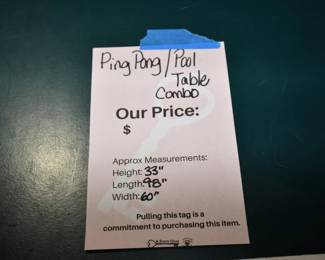 Ping Pong/Pool
Table
Combo
Our Price:
$
Approx Measurements:
Height: 33"
Length: 98"
Width: 60"
Pulling this tag is a
commitment to purchasing this item.